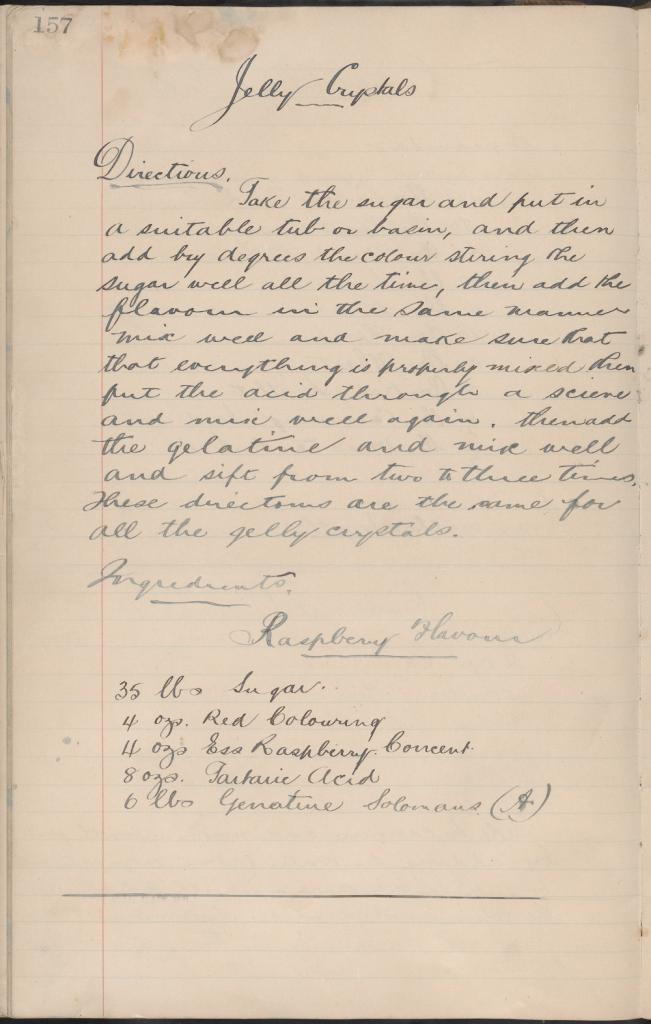 157
Jelly Crystals
Directions.
Take the sugar and put in
a suitable tub or basin, and then
add by degrees the colour stiring the
sugar well all the time, then add the
flavour in the same manner
mix well and make sure that
that everything is properly mixed then
put the acid through a scieve
and mix well again. then add
the gelatine and mix well
and sift from two to three times.
These directions are the same for
all the jelly crystals.
Ingredients.
Raspberry Flavour
35 lbs Sugar.
4 ozs. Red Colouring
4 ozs Ess Raspberry Concent.
8 ozs. Tartaric Acid
6 lbs Genatine Solomans (A)